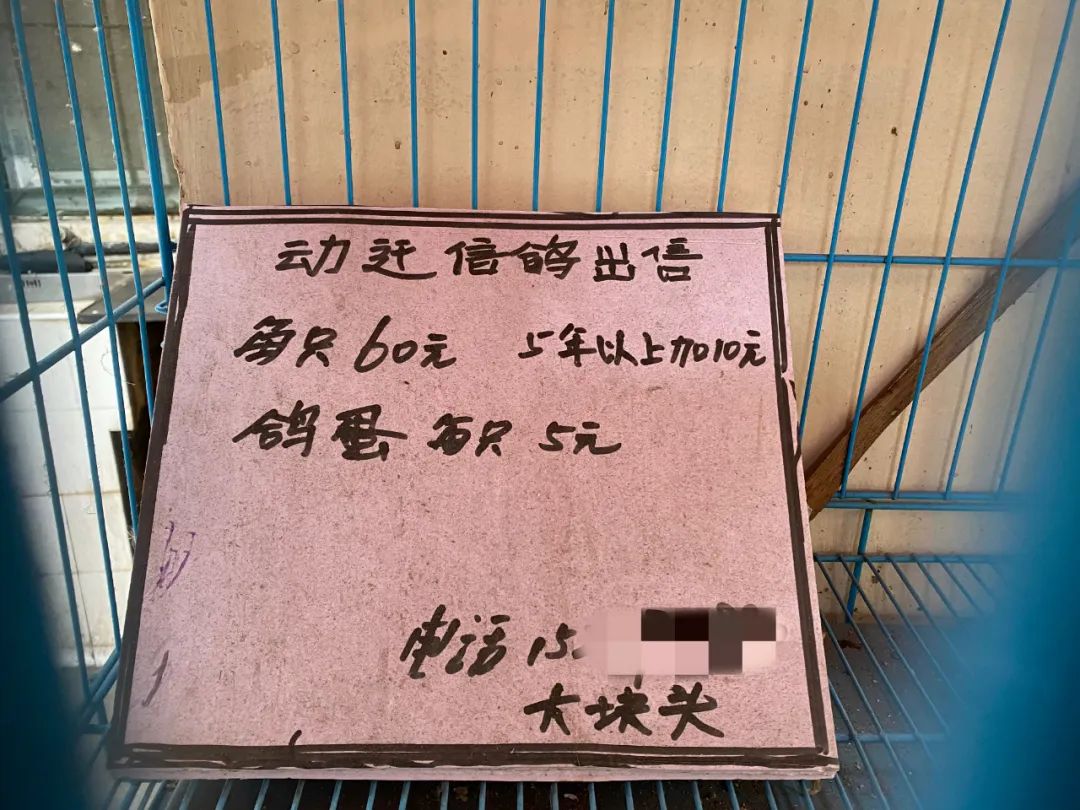 动迁信鸽出信
每只60元 5年以上加10元
鸽蛋每只5元
电话15
大块头